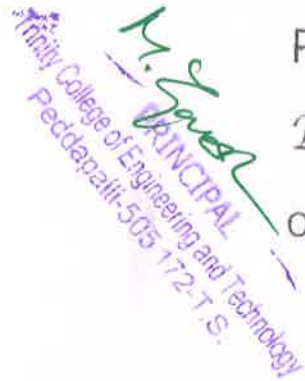 M. Suresh
PRINCIPAL
Trinity College of Engineering and Technology
Peddapalli-505 172-T.S.
P
2
o